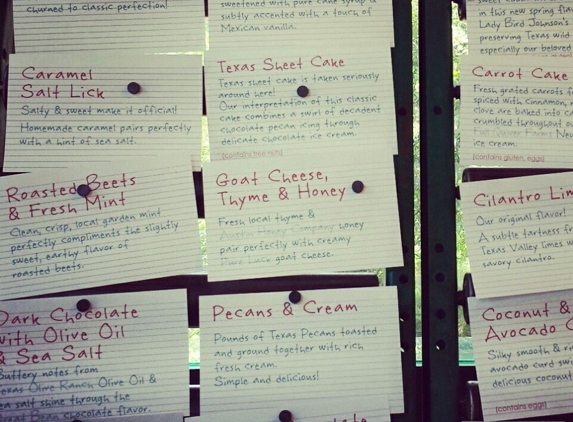 churned to classic perfection!
sweetened with pure cane syrup &
subtly accented with a touch of
Mexican vanilla.
in this new spring
Lady Bird Johnson's
preserving Texas wild
especially our beloved
Caramel
Salt Lick
Salty & sweet make it official!
Homemade caramel pairs perfectly
with a hint of sea salt.
Texas Sheet Cake
Texas sheet cake is taken seriously
around here!
Our interpretation of this classic
cake combines a swirl of decadent
chocolate pecan icing through
delicate chocolate ice cream.
[contains tree nuts]
Carrot Cake
Fresh grated carrots
spiced with cinnamon,
clove are baked into
crumbled throughout
ice cream.
[contains gluten, eggs]
Roasted Beets
& Fresh Mint
Clean, crisp, local garden mint
perfectly compliments the slightly
sweet, earthy flavor of
roasted beets.
Goat Cheese,
Thyme & Honey
Fresh local thyme &
Austin Honey Company honey
pair perfectly with creamy
Pure Luck goat cheese.
Cilantro Lim
Our original flavor!
A subtle tartness
Texas Valley limes
savory cilantro.
Dark Chocolate
with Olive Oil
& Sea Salt
Buttery notes from
Texas Olive Ranch Olive Oil &
sea salt shine through the
Great Bean chocolate flavor.
Pecans & Cream
Pounds of Texas Pecans toasted
and ground together with rich
fresh cream.
Simple and delicious!
Coconut &
Avocado C
Silky smooth &
avocado curd
delicious coconut
[contains eggs]